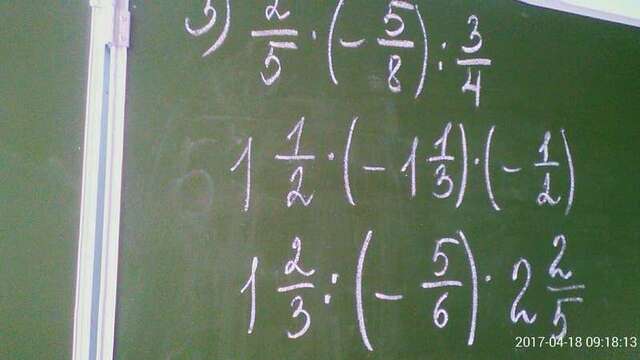 3) 2/5 · (- 5/8) : 3/4
1 1/2 · (- 1 1/3) · (- 1/2)
1 2/3 : (- 5/6) · 2 2/5
2017-04-18 09:18:13